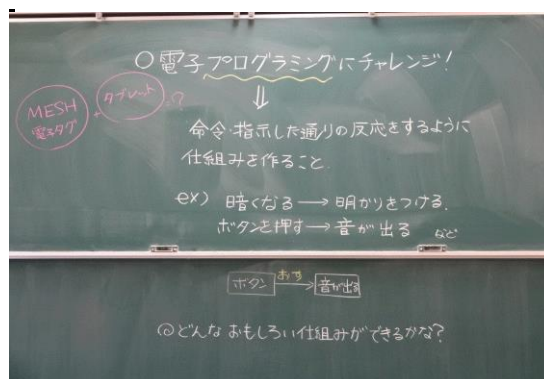 ○電子プログラミングにチャレンジ!
MESH
電子タグ
+
タブレット
…?
⇓
命令・指示した通りの反応をするように
仕組みを作ること.
ex) 暗くなる → 明かりをつける.
ボタンを押す → 音が出る など
ボタン おす → 音が出る
◎どんなおもしろい仕組みができるかな?